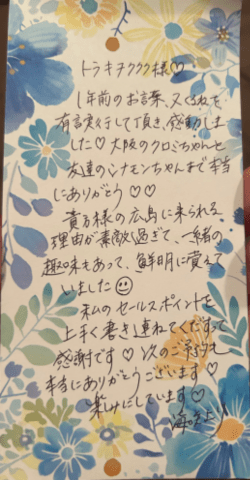 トラキチククク様♡
1年前のお言葉、又くるねを
有言実行して頂き、感動しま
した♡大阪のクロミちゃんと
友達のシナモンちゃんまで本当
にありがとう♡♡
貴方様の広島に来られる
理由が素敵過ぎて、一緒の
趣味もあって、鮮明に覚えて
いました☺
私のセールスポイントを
上手く書き連ねてくださって
感謝です♡次のご予約も
本当にありがとうございます♡
楽しみにしています♡